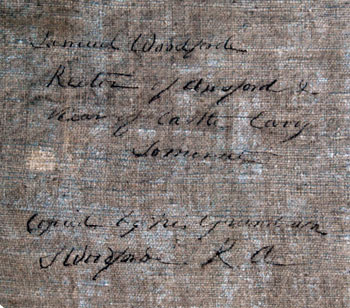 Samuel Woodforde
Rector of Ansford &
Vicar of Castle Cary
Somerset
Copied by his Grandson
S Woodforde R A